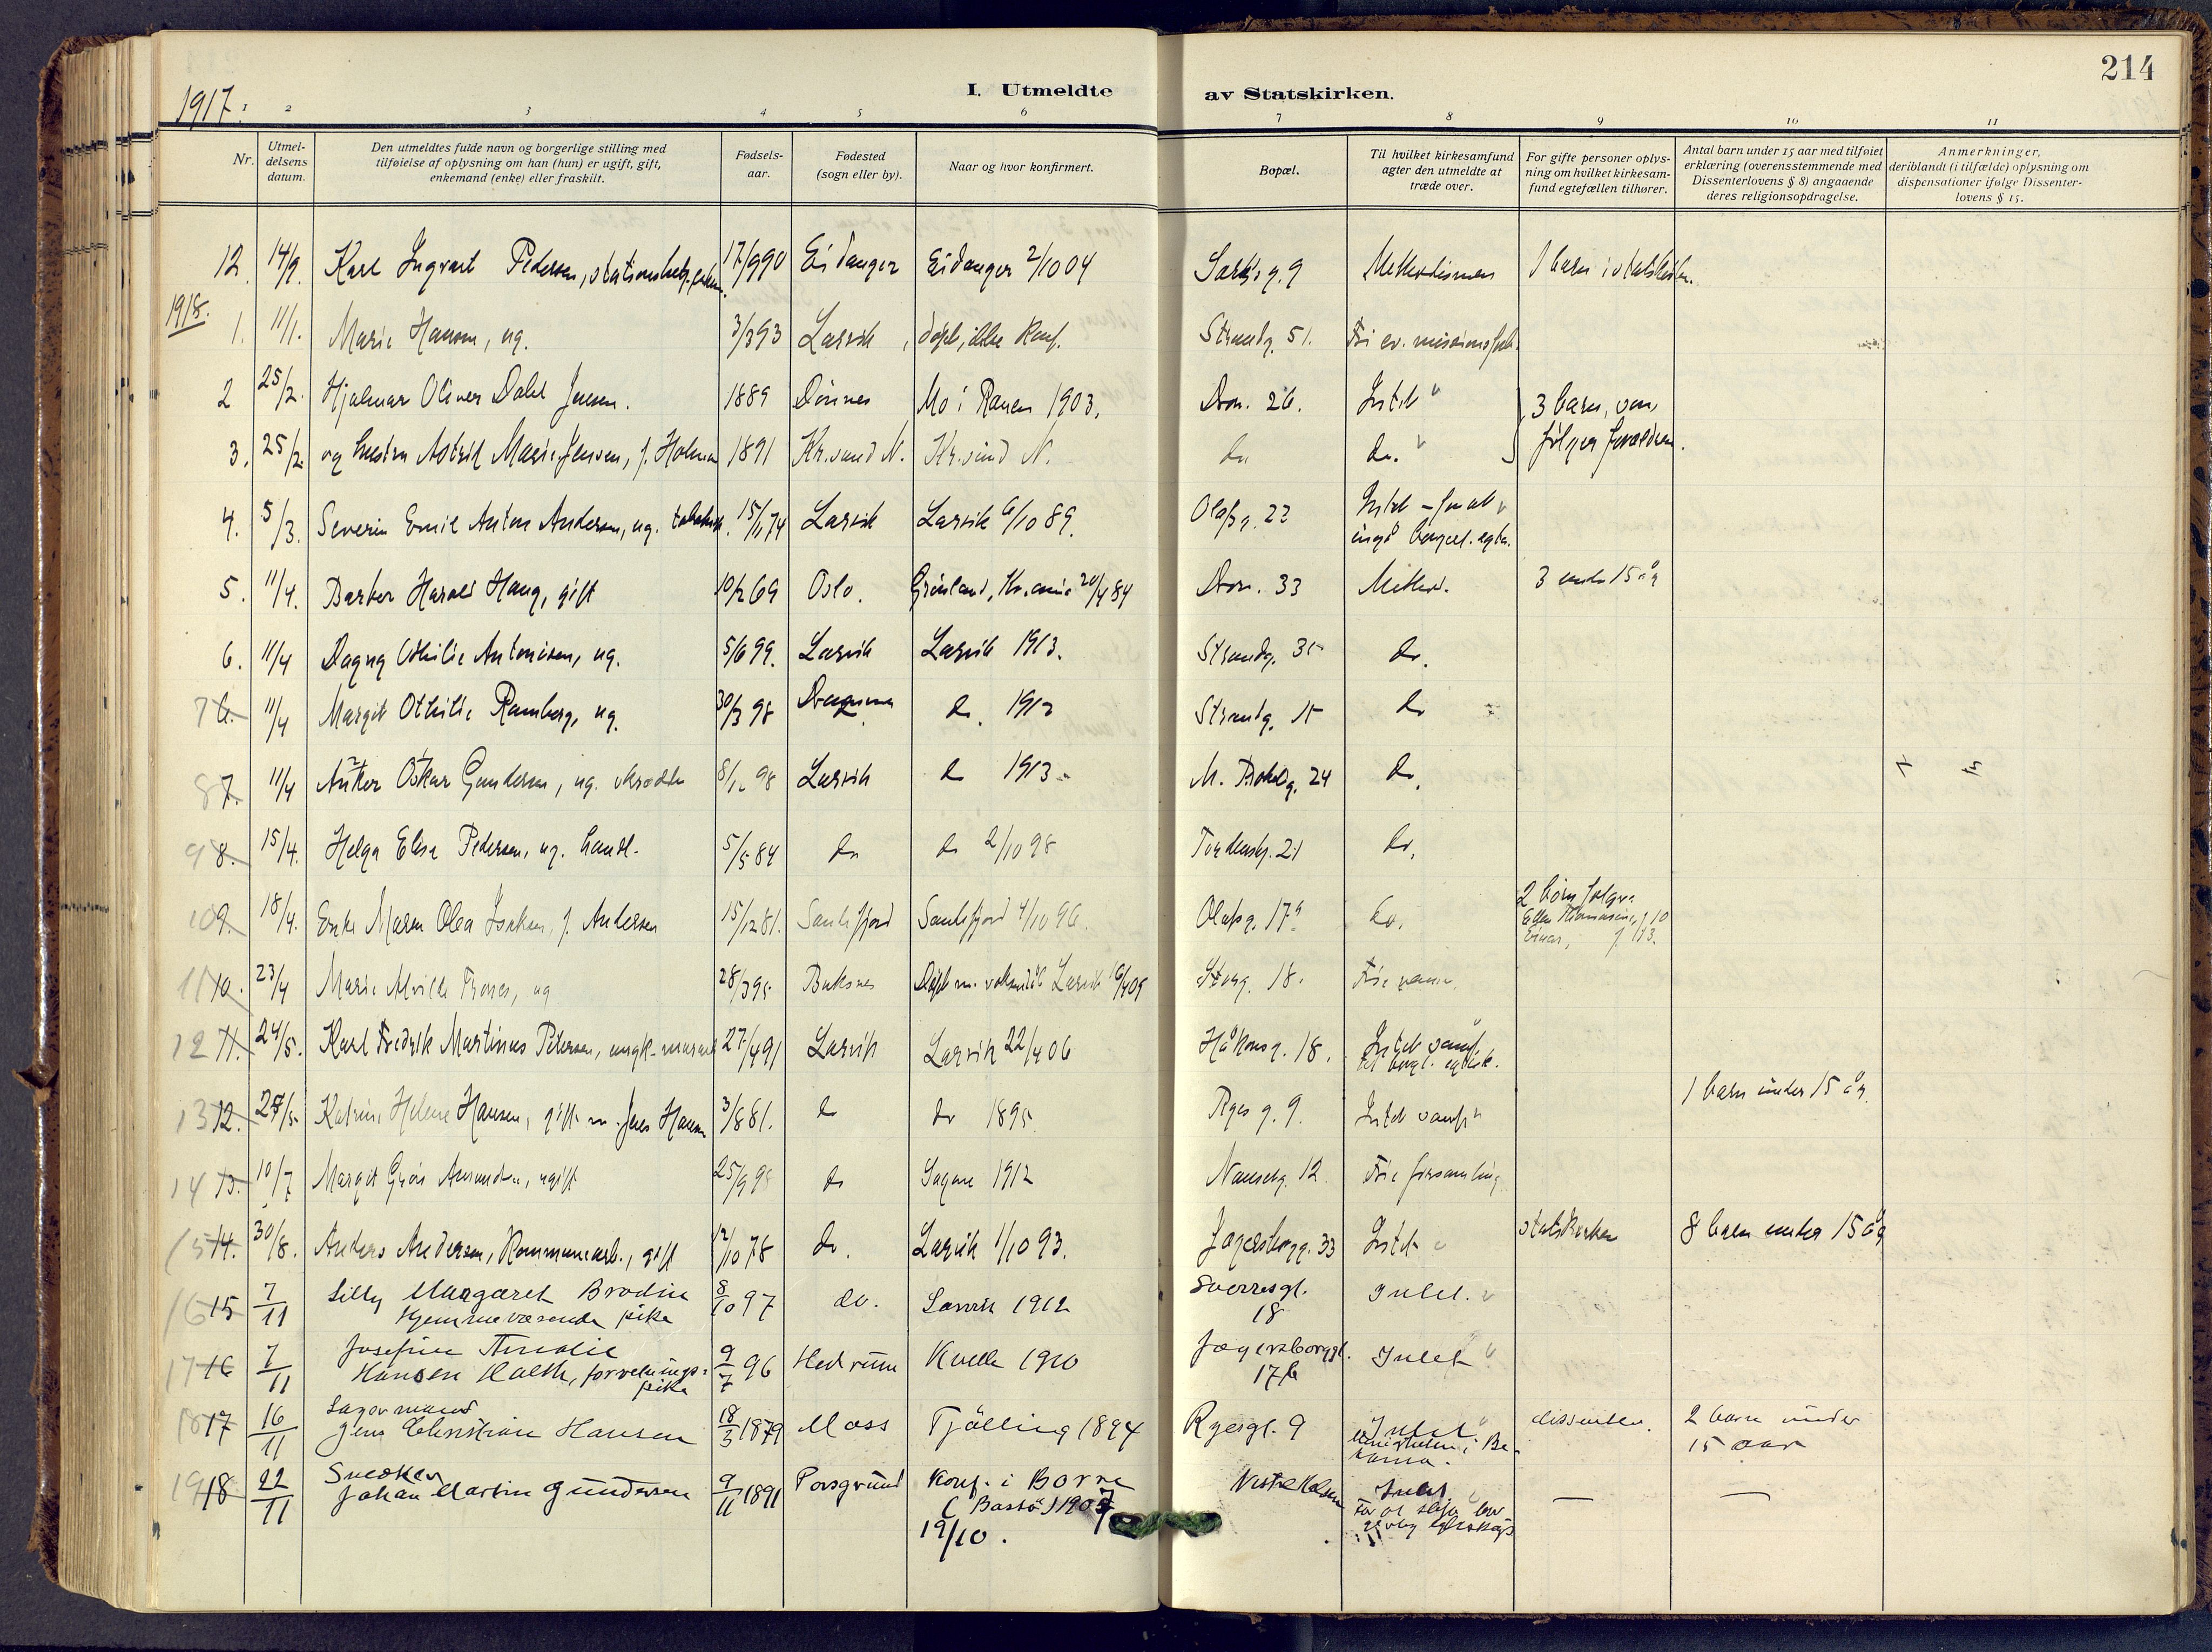 214
1917.
I. Utmeldte av Statskirken.
1 2 3 4 5 6 7 8 9 10 11
Nr.
Utmel-
delsens
datum.
Den utmeldtes fulde navn og borgerlige stilling med
tilføielse af oplysning om han (hun) er ugift, gift,
enkemand (enke) eller fraskilt.
Fødsels-
aar.
Fødested
(sogn eller by).
Naar og hvor konfirmert.
Bopæl.
Til hvilket kirkesamfund
agter den utmeldte at
træde over.
For gifte personer oplys-
ning om hvilket kirkesam-
fund egtefællen tilhører.
Antal barn under 15 aar med tilføiet
erklæring (overensstemmende med
Dissenterlovens § 8) angaaende
deres religionsopdragelse.
Anmerkninger,
deriblandt (i tilfælde) oplysning om
dispensationer ifølge Dissenter-
lovens § 15.
12. 14/9. Karl Ingvart Pedersen, 17/9 90 Eidanger Eidanger 2/10 04 g. 9 Methodismen 1 barn i statskirken.
1918.
1. 11/1. Marie Hansen, ug. 3/3 93 Larvik døpt, ikke konf. Strandg. 51. Fri ev. missionsforb.
2 25/2. Hjalmar Oliver Dahl Jensen. 1889 Dønnes Mo i Ranen 1903. Dron. 26. Intet 3 barn, som
3. 25/2. og hustru Astrid Marie Jensen, f. Holmen 1891 Kr.sund N. Kr.sund N. do do. følger forældrene.
4. 5/3. Severin Emil Anton Andersen, ug. 15/11 74 Larvik Larvik 6/10 89. Olafsg. 22 Intet - for at
indgå borgerl. egtesk.
5. 11/4. Barber Harald Haug, gift 10/2 69 Oslo. Grønland, Kr.ania 20/4 84 Dron. 33 Method. 3 under 15 år
6. 11/4 Dagny Othilie Antonisen, ug. 5/6 99. Larvik Larvik 1913. Strandg. 35 do.
7 6. 11/4 Margit Othilie Ramberg, ug. 30/3 98 do. 1912 Strandg. 15 do
8 7. 11/4 Anker Oskar Gundersen, ug. 8/12 98 Larvik do 1913. 24 do.
9 8. 15/4. Helga Elise Pedersen, ug. handl. 5/5 84 do do 2/10 98 Tordenskj. 21 do.
10 9. 18/4. Enke Maren Olea Isaksen, f. Andersen 15/12 81. Sandefjord Sandefjord 4/10 96. Olafsg. 17 do. 2 børn følger:
Ellen Thomasine, f. 10
Einar, f. 113.
11 10. 23/4 Marie Alvilde Trones, ug 28/3 95 Buksnes Døpt m. voksendåb Larvik 16/4 09 Storg. 18. Frie venner.
12 11. 24/5. Karl Fredrik Martinus Petersen, ungk. 27/4 91 Larvik Larvik 22/4 06 Håkonsg. 18. Intet samf.
13 12. 27/5 Katrine Helene Hansen, gift m. Jens Hansen 3/8 81. do do 1895 Ryesg. 9. Intet samf. 1 barn under 15 år.
14 13. 10/7 Margit Amundsen, ugift 25/9 98 do Sagene 1912 Nansetg. 12 Frie forsamling
15 14. 30/8. Anders Andersen, Kommunearb., gift 12/10 78 do. Larvik 1/10 93. Jegersborgg. 33 Intet statskirken 8 barn under 15 år
16 15 7/11 Lilly Margaret Brodin 8/10 97 do. Larvik 1912 Sverresgt. Intet.
Hjemmeværende pike 18
17 16 7/11 Josefine Amalie 9/7 96 Hedrum Kvelle 1910 Jegersborggt. Intet
Hansen Holth, forretnings= 17b
pike
18 17 16/11 Lagermand
Jens Christian Hansen 18/3 1879 Moss Tjølling 1894 Ryesgt. 9 Intet dissenter. 2 barn under
15 aar
19 18 22/11 Snedker
Johan Martin Gundersen 9/11 1891 Porsgrund Konf. i Borre Vestre Halsen Intet — —
(Bastø) 1907
19/10.